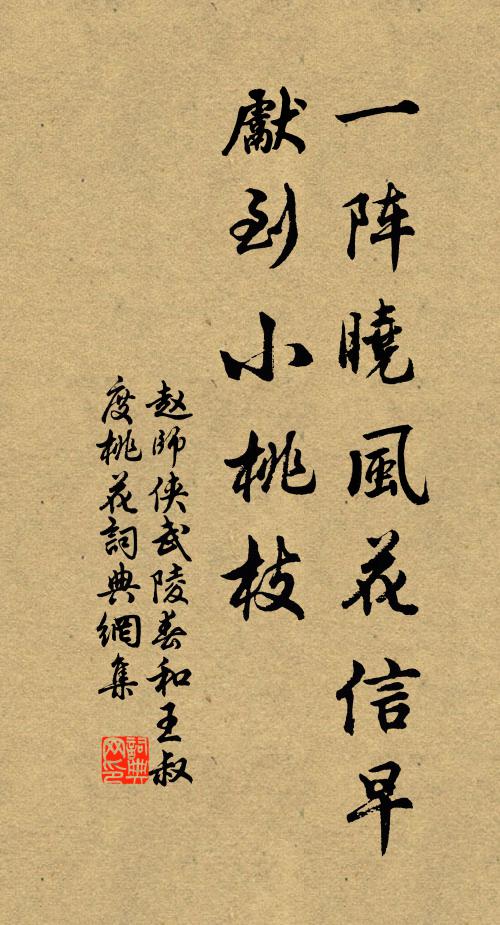 一阵曉風花信早
獻到小桃枝
赵師侠武陵春和王叔
度桃花詞典網集
詞典网印